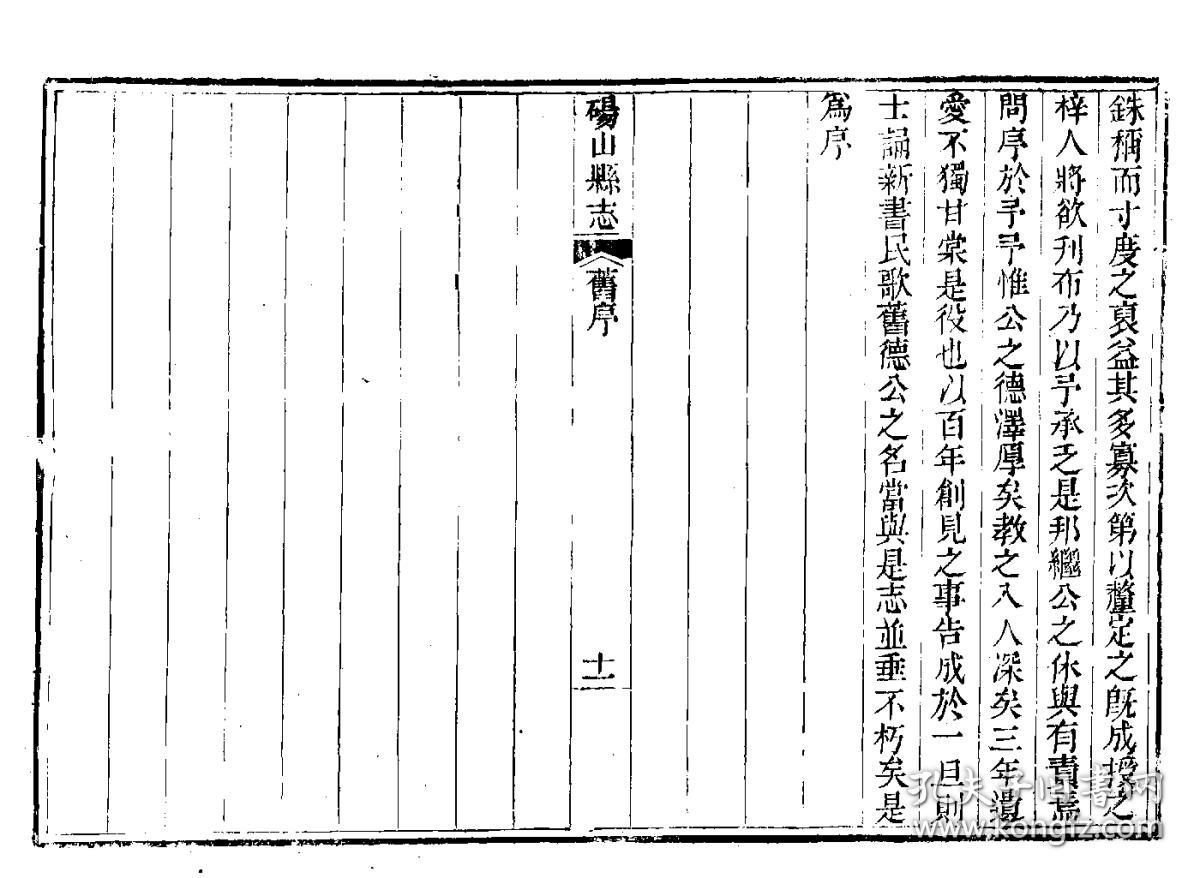 銖稱而寸度之裒益其多寡次第以釐定之旣成授之
梓人將欲刋布乃以予承乏是邦繼公之休與有責焉
問序於予予惟公之德澤厚矣教之入人深矣三年遺
愛不獨甘棠是役也以百年創見之事告成於一旦則
士誦新書民歌舊德公之名當與是志並垂不朽矣是
爲序
碭山縣志
舊序
十一
孔夫子旧書网
www.kongfz.com